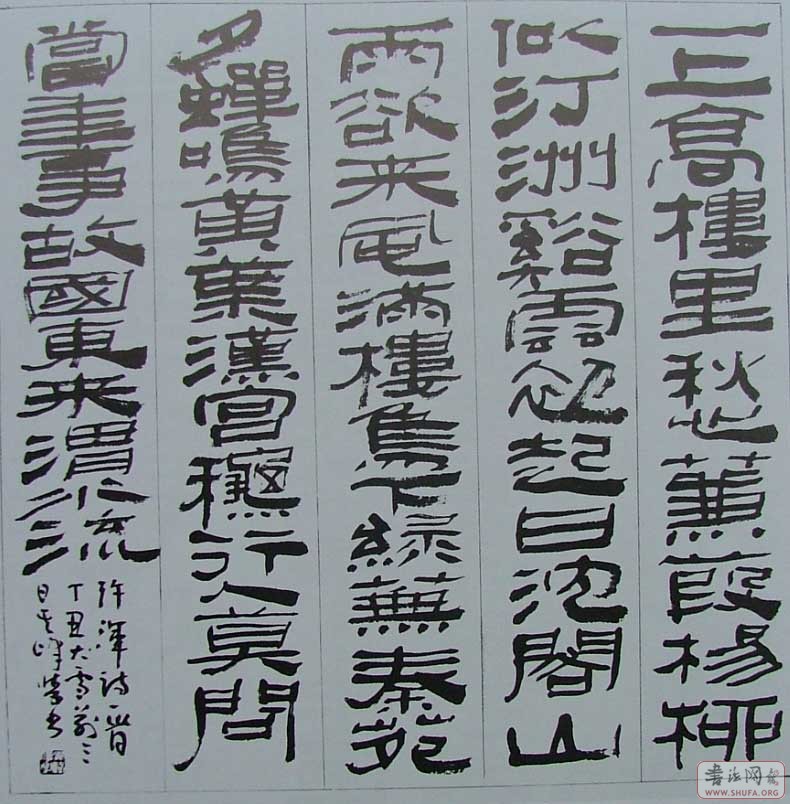 一上高樓里愁蒹葭楊柳
似汀洲谿雲初起日沈閣山
雨欲来風滿樓鳥下緑蕪秦苑
夕蟬鳴黄葉漢宮穐行人莫問
當年事故國東来渭水流
許渾詩一首
丁丑大雪前三
日峰書
书法网
WWW.SHUFA.ORG